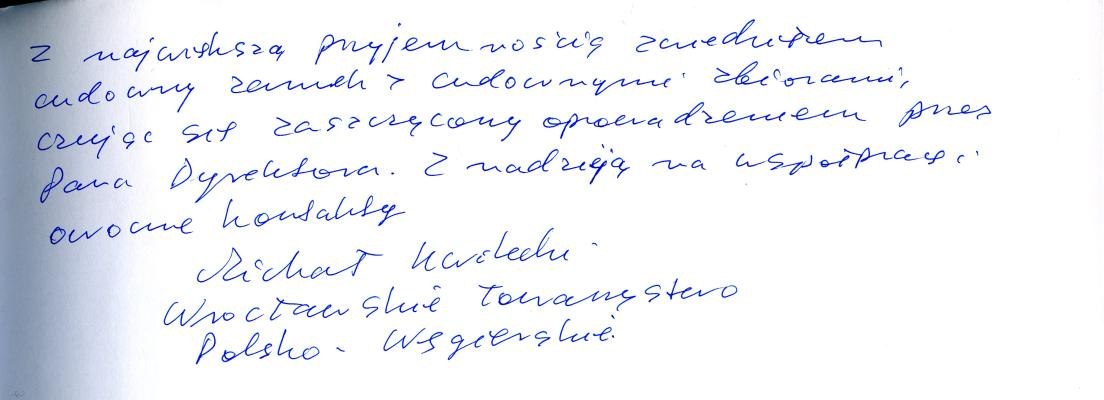 Z największą przyjemnością zwiedziłem
cudowny zamek z cudownymi zbiorami,
czując się zaszczycony oprowadzeniem przez
Pana Dyrektora. Z nadzieją na współpracę i
owocne kontakty
Michał
Wrocławskie Towarzystwo
Polsko - Węgierskie